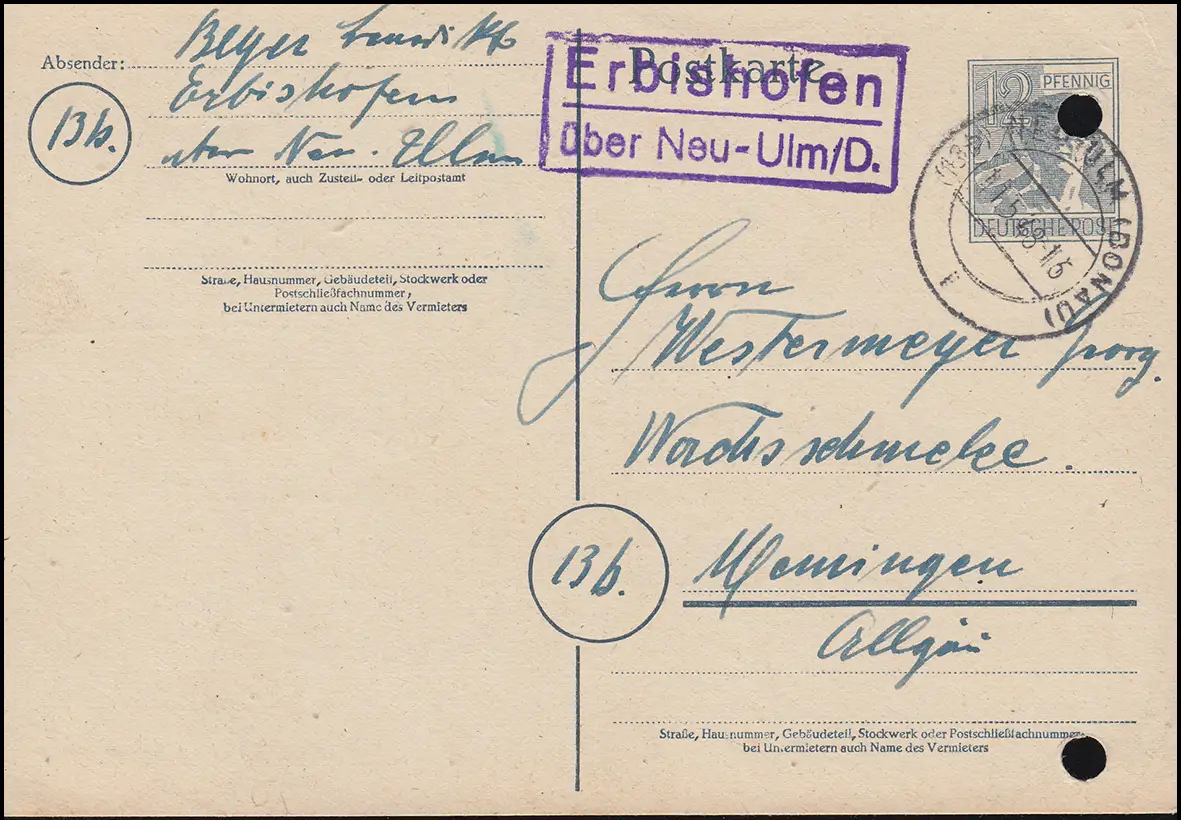 Absender: Beyer
Erbishofen
13b.
über Neu-Ulm
Wohnort, auch Zustell- oder Leitpostamt
Straße, Hausnummer, Gebäudeteil, Stockwerk oder
Postschließfachnummer,
bei Untermietern auch Name des Vermieters
Postkarte
Erbishofen
über Neu-Ulm/D.
12 PFENNIG
DEUTSCHE POST
(13b) NEU-ULM (DONAU)
Herrn
Westermeyer Georg.
Wachsschmelze.
13b.
Memmingen
Allgäu
Straße, Hausnummer, Gebäudeteil, Stockwerk oder Postschließfachnummer,
bei Untermietern auch Name des Vermieters